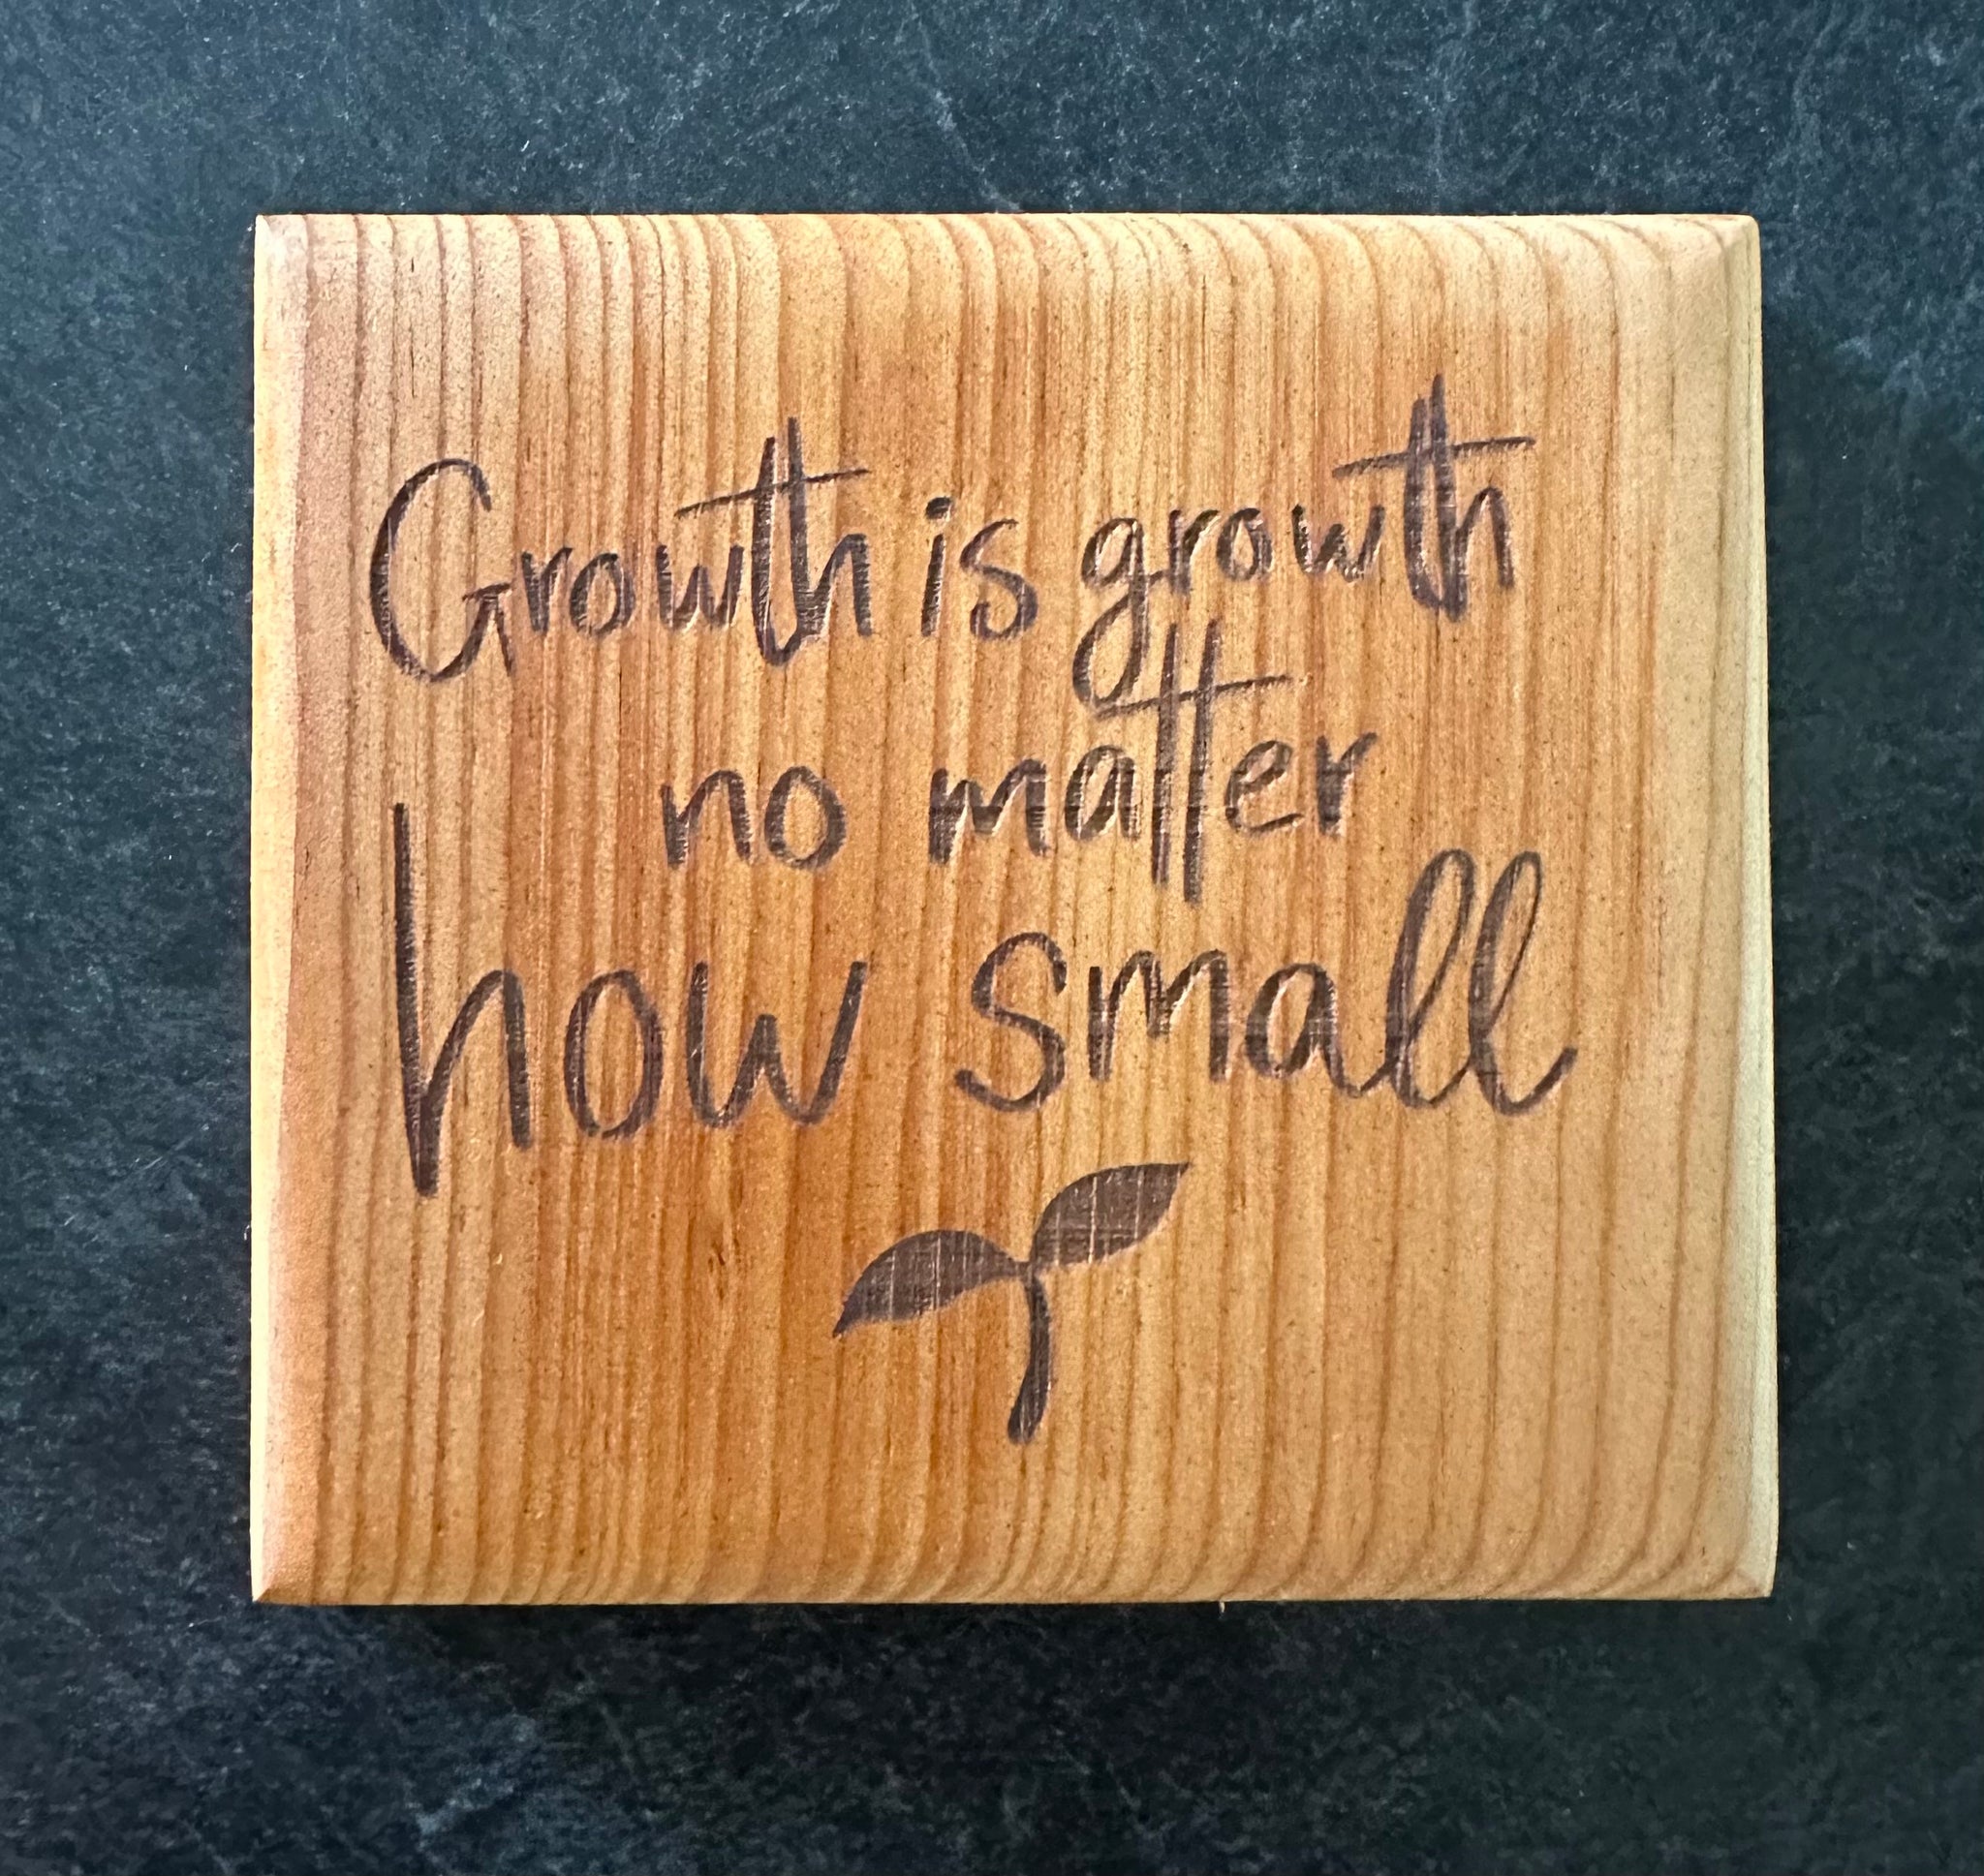 Growth is growth
no matter
how small